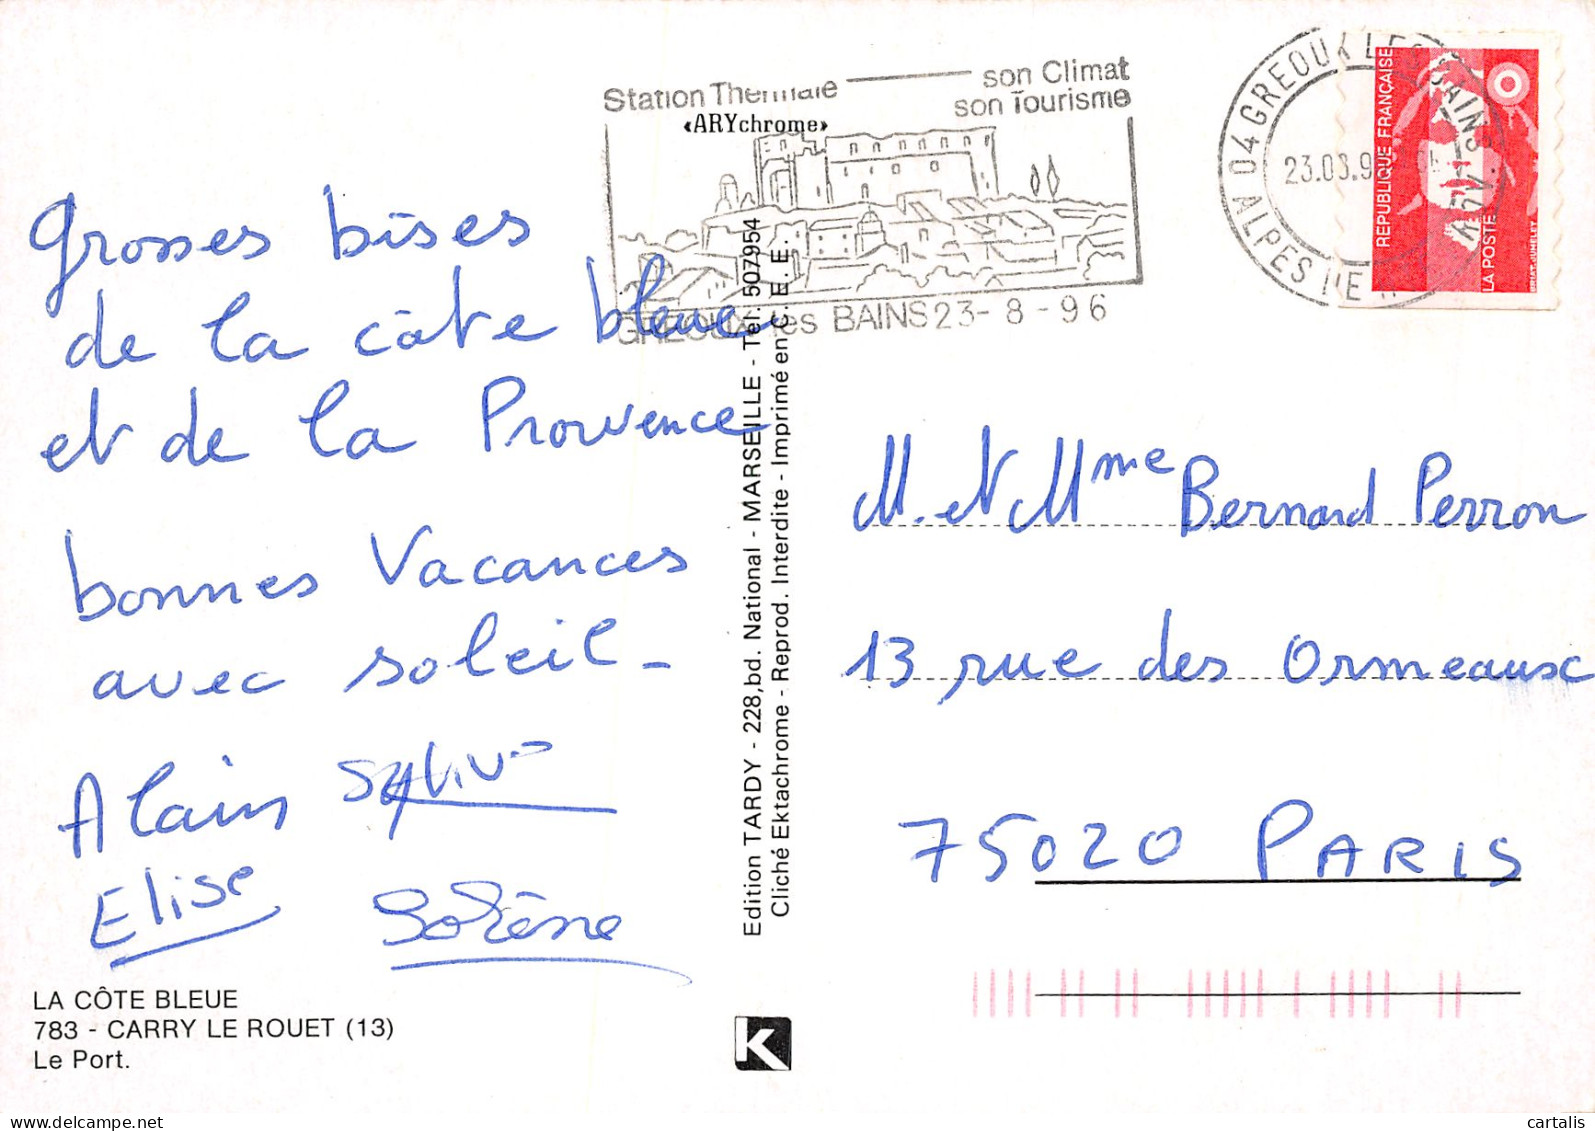 Station Thermale son Climat
son Tourisme
«ARYchrome»
GREOUX les BAINS 23-8-96
04 GREOUX LES BAINS
ALPES DE H
23.03.9
REPUBLIQUE FRANÇAISE
LA POSTE
BRIAT.JUMELET
Grosses bises
de la côte bleue
et de la Prowence
bonnes Vacances
avec soleil_
Alain Sylvie
Elise Solène
LA CÔTE BLEUE
783 - CARRY LE ROUET (13)
Le Port.
Edition TARDY - 228,bd. National - MARSEILLE - Tel. 507954
Cliché Ektachrome - Reprod. Interdite - Imprimé en C. E. E.
K
M. et Mme Bernard Perron
13 rue des Ormeaux
75020 PARIS
cartalis
delcampe.net